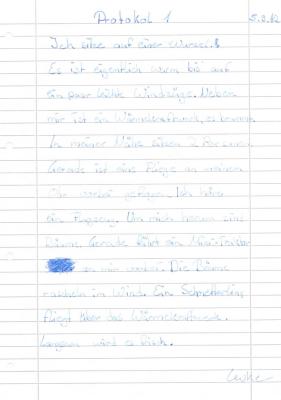 Protokol 1
Ich sitze auf einer Wiese.
Es ist eigentlich warm bis auf
ein paar leichte Windzüge. Neben
mir ist ein es brummt.
In meiner Nähe sitzen 2 Personen.
Gerade ist eine Fliege an meinem
Ohr vorbei geflogen. Ich höre
ein Flugzeug. Um mich herum sind
Bäume. Gerade fährt ein
an mir vorbei. Die Bäume
rascheln im Wind. Ein Schmetterling
fliegt über das
Langsam wird es frisch.